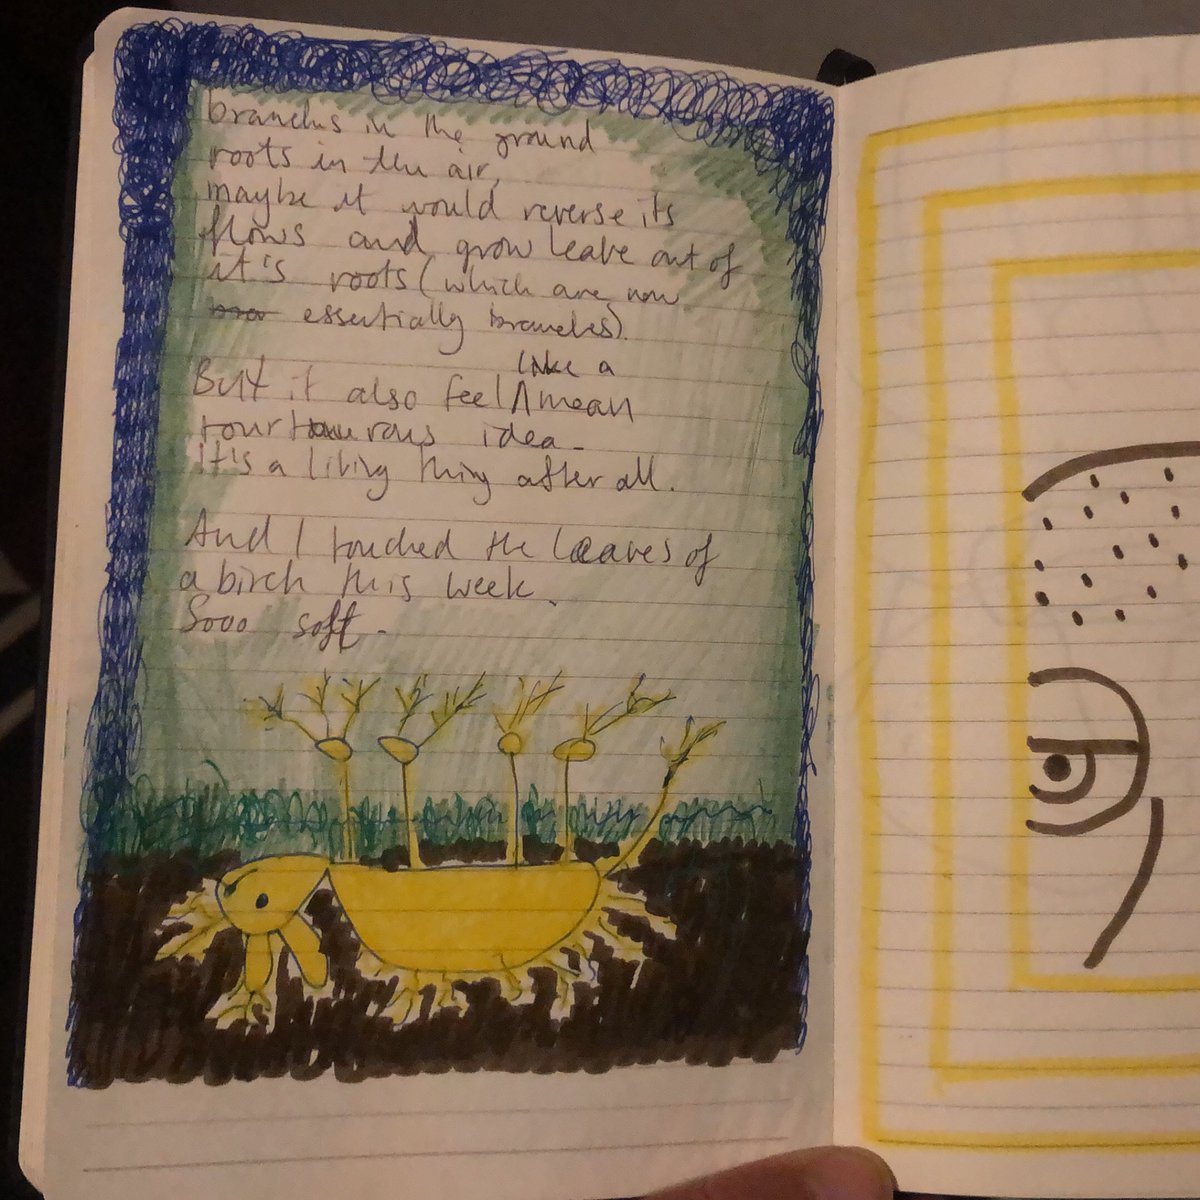 branches in the ground
roots in the air,
maybe it would reverse its
flows and grow leave out of
it's roots (which are now
essentially branches).
But it also feel like a mean
idea.
it's a living thing after all.
And I touched the leaves of
a birch this week.
Sooo soft.